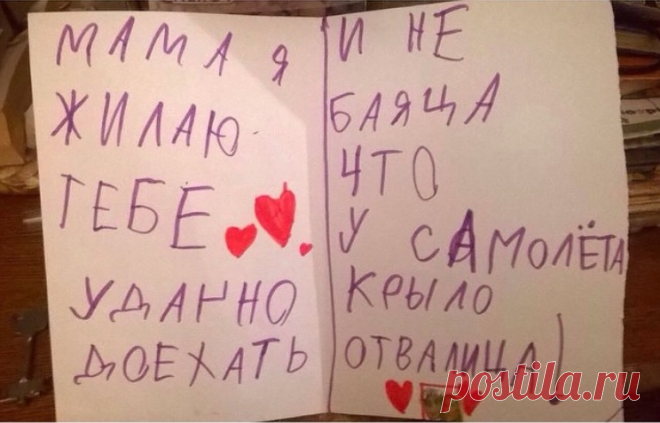 МАМА Я
ЖИЛАЮ
ТЕБЕ
УДАЧНО
ДОЕХАТЬ
И НЕ
БАЯЦА
ЧТО
У САМОЛЁТА
КРЫЛО
ОТВАЛИЦА!
postila.ru